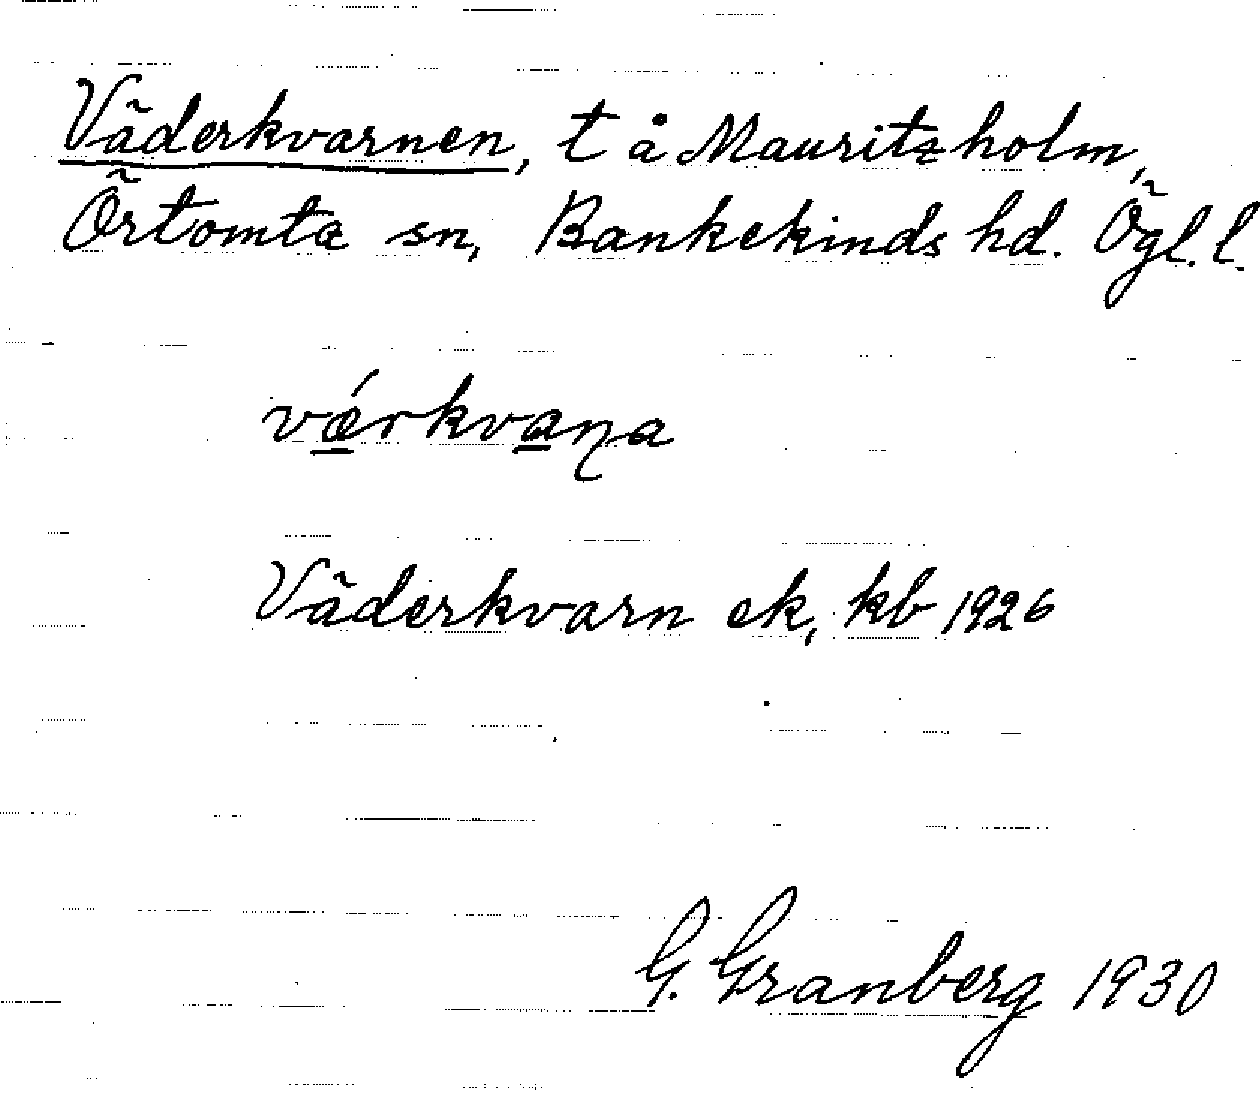 Väderkvarnen, t å Mauritzholm,
Örtomta sn, Bankekinds hd. Ögl. l.
vǽrkvaṇa
Väderkvarn ek, kb 1926
G. Granberg 1930